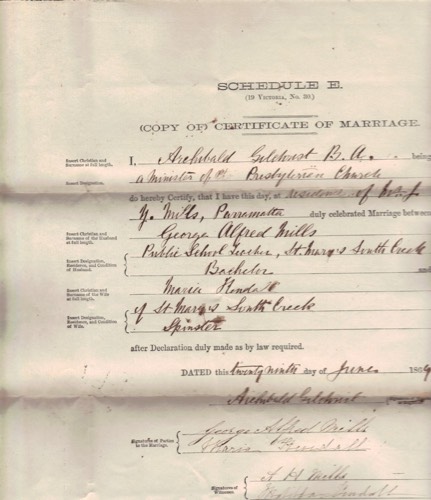 SCHEDULE E.
(19 VICTORIA, NO. 30.)
(COPY OF) CERTIFICATE OF MARRIAGE.
Insert Christian and Surname at full length. I, Archibald Gilchrist B. A. being
Insert Designation. a Minister of the Presbyterian Church
do hereby Certify, that I have this day, at residence of
Mills, Parramatta duly celebrated Marriage between
Insert Christian and Surname of the Husband at full length. George Alfred Mills
Public School Teacher, St. Mary's South Creek
Insert Designation, Residence, and Condition of Husband. Bachelor and
Insert Christian and Surname of the Wife at full length. Maria Kendall
Insert Designation, Residence, and Condition of Wife. of St Marys South Creek
Spinster
after Declaration duly made as by law required.
DATED this twenty ninth day of June 186
Archibald Gilchrist
George Alfred Mills
Signatures of Parties to the Marriage. Maria Kendall
Signatures of Witnesses. Mills
Kendall